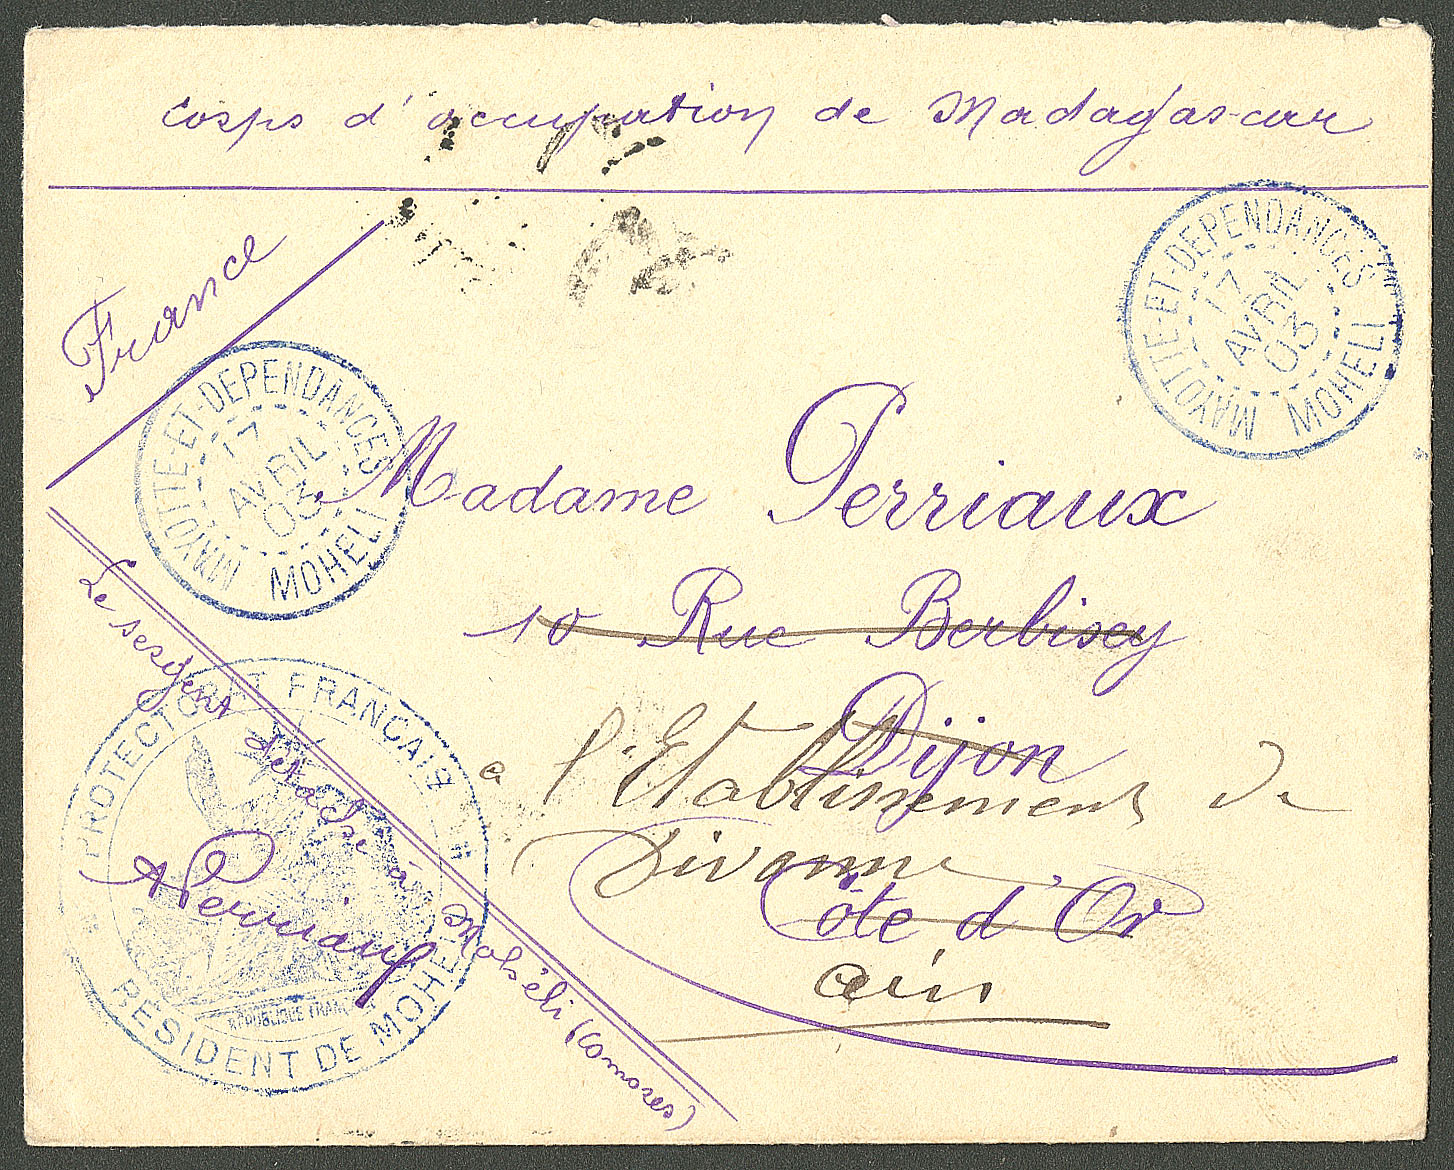 Corps d'occupation de Madagascar
France
MAYOTTE-ET-DEPENDANCES
17
AVRIL
03
MOHELI
MAYOTTE-ET-DEPENDANCES
17
AVRIL
03
MOHELI
Madame Perriaux
10 Rue Berbisey
Dijon
a l'Etablissement de
Divonne
Côte d'Or
Ain
Le sergent détaché à Mohéli (Comores)
APerriaux
PROTECTORAT FRANÇAIS
REPUBLIQUE FRANÇAISE
RÉSIDENT DE MOHELI